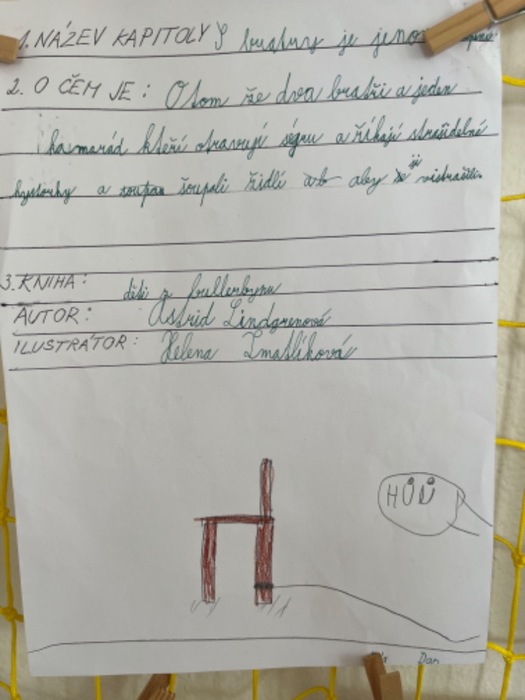 1. NÁZEV KAPITOLY S bratry je jenom
2. O ČEM JE: Otom že dva bratři a jeden
kamarád kteří otravují ségru a říkají strašidelné
hystorky a soupan šoupali židlí ab aby že ji vistrašili.
3. KNIHA: děti z bullerbynu
AUTOR: Astrid Lindgrenová
ILUSTRÁTOR: Helena Zmatlíková
HŮŮ
Dan